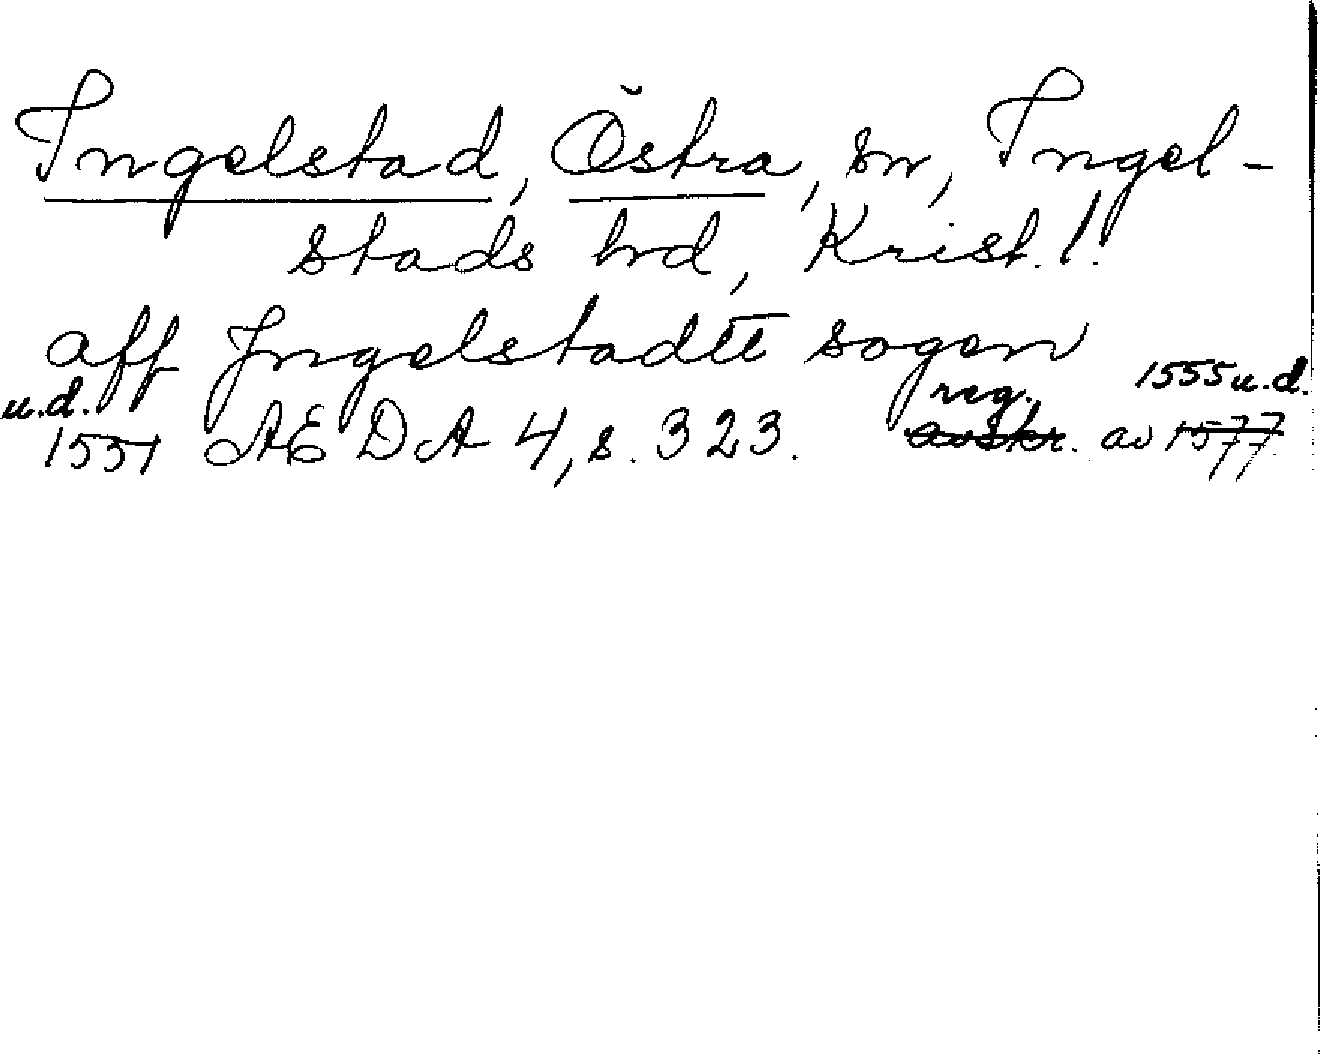 Ingelstad, Östra, sn, Ingel-
stads hd, Krist. l.
aff Jngelstadtt sogen
u.d. reg. 1555 u.d.
1551 AEDA 4, s. 323. avskr. av 1577